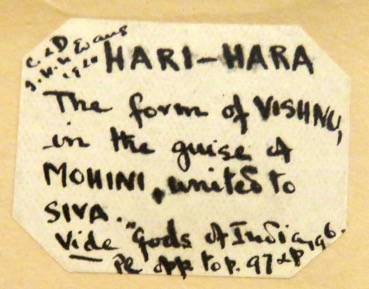 C & D
J. H. N Evans
1920
HARI-HARA
The form of VISHNU,
in the guise of
MOHINI, united to
SIVA.
Vide "Gods of India, 96.
Pl opp to p. 97